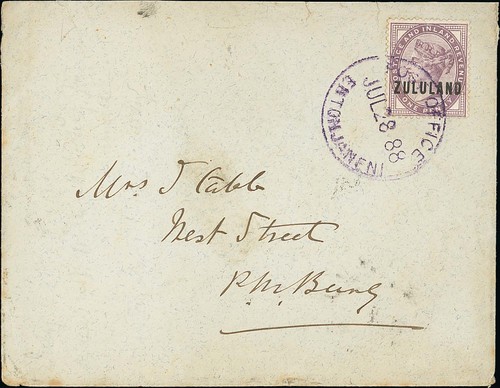 POSTAGE AND INLAND REVENUE
ZULULAND
POST OFFICE
JUL 28 88
ENTONJANENI
Mrs J Cabb
West Street
P.M.Burg